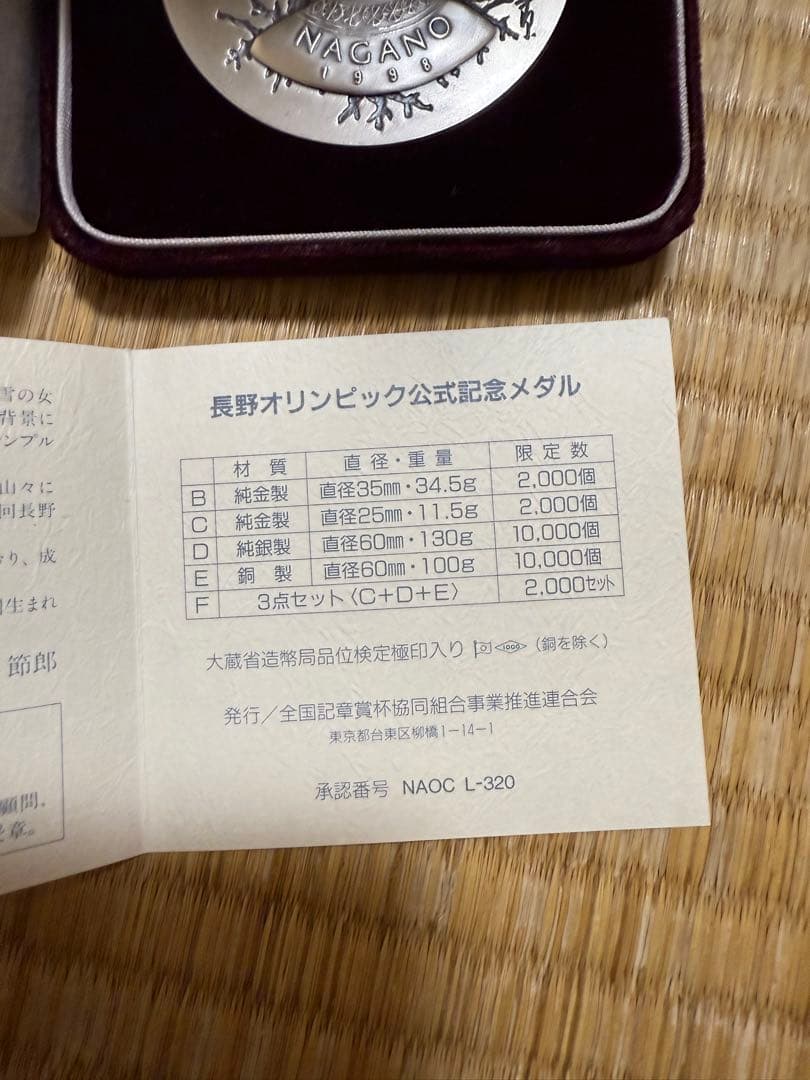 NAGANO
1998
雪の女
背景に
ンプル
山々に
回長野
り、成
生まれ
節郎
顧問。
章。
長野オリンピック公式記念メダル
材質 直径・重量 限定数
B 純金製 直径35㎜・34.5g 2,000個
C 純金製 直径25㎜・11.5g 2,000個
D 純銀製 直径60㎜・130g 10,000個
E 銅製 直径60㎜・100g 10,000個
F 3点セット〈C+D+E〉 2,000セット
大蔵省造幣局品位検定極印入り 1000 (銅を除く)
発行/全国記章賞杯協同組合事業推進連合会
東京都台東区柳橋1-14-1
承認番号 NAOC L-320